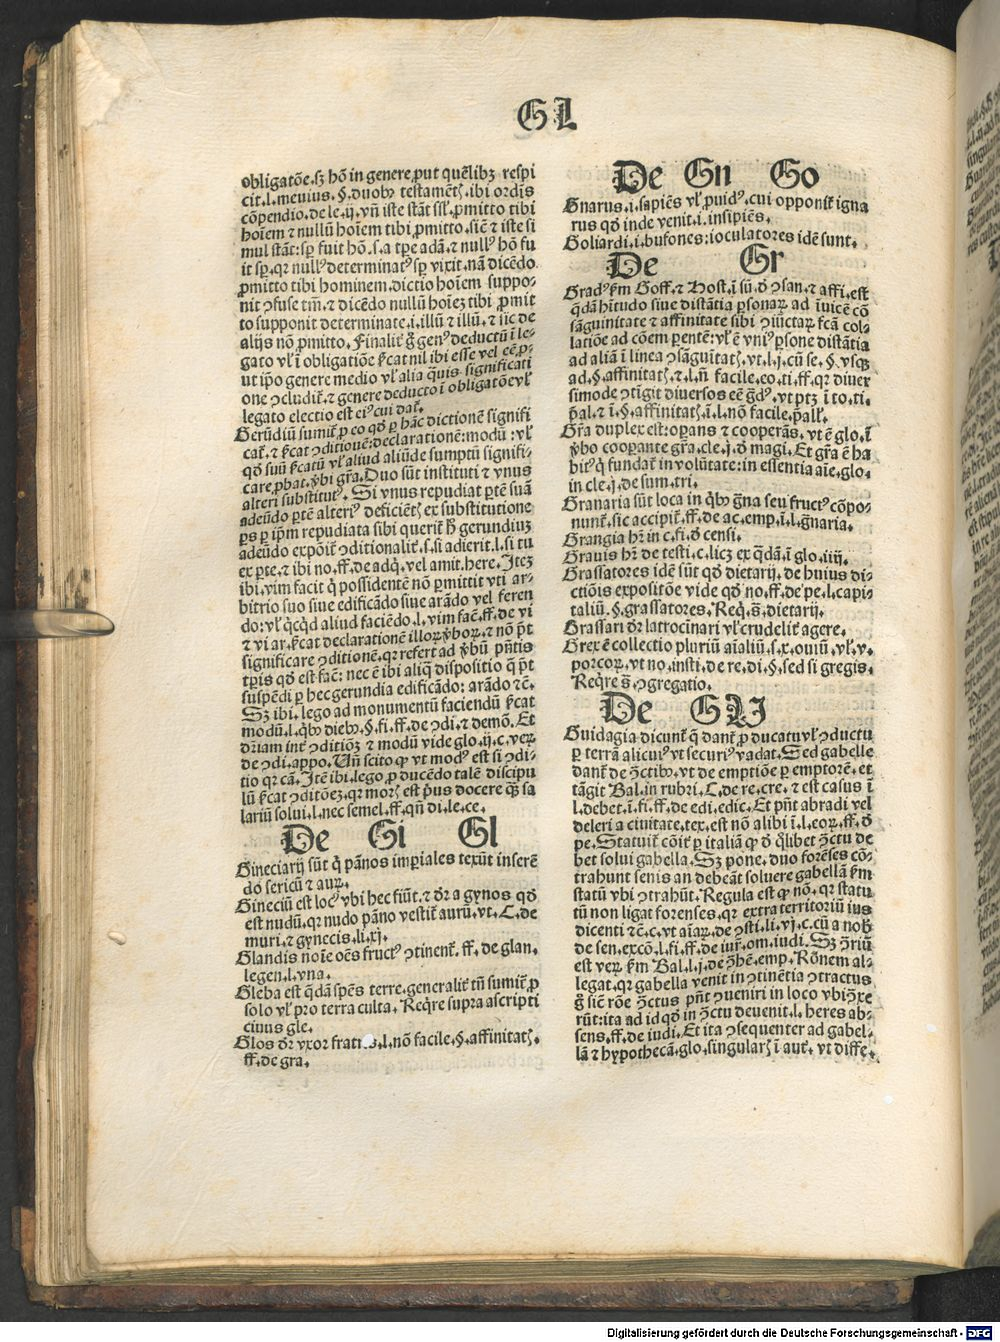 GL
obligatōe.sȝ hōı̄ in genere ꝓut quēlibȝ respi
cit.l.meuius.§.duobꝰ testamētꝭ.ibi ordīs
cōpendio.de le.ij.vn̄ iste stāt sīl.ꝓmitto tibi
hoīem ⁊ nullū hoīem tibi ꝓmitto.sic̄ ⁊ iste si
mul stāt:sꝑ fuit hō.s.a tꝑe adā.⁊ nullꝰ hō fu
it sꝑ.qꝛ nullꝰ determinatꝰ sꝑ vixit.nā dicēdo
ꝓmitto tibi hominem.dictio hoīem suppo-
nit ꝯfuse tm̄.⁊ dicēdo nullū hoīeȝ tibi ꝓmit
to supponit determinate.i.illū ⁊ illū.⁊ sic de
alijs nō ꝓmitto.Finalit̄ g̊ genꝰ deductū ī le-
gato vl̓ ī obligatiōe ẜcat nil ibi esse vel eē.ꝓ-
ut ip̄o genere medio vl̓ alia q̄uis significati
one ꝯcludit̄.⁊ genere deducto ī obligatōe vl̓
legato electio est eiꝰ cui dat̄.
Gerūdiū sumit̄ ꝓ eo qd̓ ꝑ hāc dictionē signifi
cat̄.⁊ ẜcat ꝯditionē:declarationē:modū:vl̓
qd̓ suū ẜcatū vl̓ aliud aliūde sumptū signifi-
care.ꝓbat̄.v̓bi gr̄a.Duo sūt instituti ⁊ vnus
alteri substitutꝰ.Si vnus repudiat ꝑtē suā
adeūdo ꝑtē alteriꝰ deficiētꝭ ex substitutione
ꝑs ꝑ ip̄m repudiata sibi querit̄ h̓ gerundiuȝ
adeūdo expōit̄ ꝯditionalit̄.s.si adierit.l.si tu
ex ꝑte.⁊ ibi no.ff.de adq̄.vel amit.here.Iteȝ
ibi.vim facit q̓ possidentē nō ꝑmittit vti ar-
bitrio suo siue edificādo siue arādo vel feren
do:vl̓ q̓cqd̓ aliud faciēdo.l.vim fac̄.ff.de vi
⁊ vi ar.ẜcat declarationē illoꝝ v̓boꝝ.⁊ nō p̄t
significare ꝯditionē.qꝛ refert ad v̓bū p̄ntis
tp̄is qd̓ est fac̄:nec ē ibi aliq̄ dispositio q̄ p̄t
suspēdi ꝑ hec gerundia edificādo:arādo ⁊c̄.
Sȝ ibi.lego ad monumentū faciendū ẜcat
modū.l.qbꝰ diebꝰ.§.fi.ff.de ꝯdi.⁊ demō.Et
dr̄iam int̄ ꝯditiōȝ ⁊ modū vide glo.ij.c.veꝝ
de ꝯdi.appo.Vn̄ scito ꝙ vt modꝰ est si ꝯdi-
tio qꝛ cā.Itē ibi.lego.ꝓ ducēdo talē discipu
lū ẜcat ꝯditōeȝ.qꝛ morꝭ est pͥus docere q̄ꝫ sa
lariū solui.l.nec semel.ff.qn̄ di.le.ce.
De Gi Gl
Gineciarij sūt q̓ pānos imꝑiales texūt inserē
do sericū ⁊ auꝝ.
Gineciū est locꝰ vbi hec fiūt.⁊ dr̄ a gynos qd̓
est nudū.qꝛ nudo pāno vestit̄ aurū.vt.C.de
muri.⁊ gynecis.li.xj.
Glandis noīe oēs fructꝰ ꝯtinent̄.ff.de glan.
legen.l.vna.
Gleba est q̄dā spēs terre.generalit̄ tn̄ sumit̄ ꝓ
solo vl̓ ꝓ terra culta.Reqͥre supra ascripti
cius gle.
Glos dr̄ vxor fratris.l.nō facile.§.affinitatꝭ.
ff.de gra.
De Gn Go
Gnarus.i.sapiēs vl̓ ꝓuidꝰ.cui opponit̄ igna
rus qd̓ inde venit.i.insipiēs.
Goliardi.i.bufones:ioculatores idē sunt.
De Gr
Gradꝰ ẜm Goff.⁊ Host.ī sū.d̓ ꝯsan.⁊ affi.est
q̄dā hītudo siue distātia ꝑsonaꝝ ad īuicē cō
sāguinitate ⁊ affinitate sibi ꝯiūctaꝝ fcā col-
latiōe ad cōem parentē:vl̓ ē vniꝰ ꝑsone distātia
ad aliā ī linea ꝯsāguītatꝭ.vt.l.j.cū se.§.vsqꝫ
ad.§.affinitatꝭ.⁊.l.n̄ facile.eo.ti.ff.qꝛ diuer
simode ꝯtīgit diuersos eē g̊dꝰ.vt ptȝ ī to.ti.
p̄al.⁊ ī.§.affinitatꝭ.ī.l.nō facile.p̄all̓.
Gr̄a duplex est:oꝑans ⁊ cooꝑans.vt ē glo.ī
v̓bo cooꝑante gr̄a.cle.j.d̓ magi.Et gr̄a ē ha
bitꝰ q̓ fundat̄ in volūtate:in essentia aīe.glo.
in cle.j.de sum.tri.
Granaria sūt loca in qͥbꝰ g̓na seu fructꝰ cōpo-
nunt̄.sic accipit̄.ff.de ac.emp.ī.l.g̓naria.
Grangia hr̄ in c.fi.d̓ censi.
Grauis hr̄ de testi.c.licȝ ex q̄dā.ī glo.iiij.
Grassatores idē sūt qd̓ dietarij.de huius di-
ctiōis expositōe vide qd̓ no.ff.de pe.l.capi-
taliū.§.grassatores.Req̄.s̄.dietarij.
Grassari dr̄ latrocīnari vl̓ crudelit̄ agere.
Grex ē collectio pluriū aīaliū.s.x.ouiū.vl̓.v.
porcoꝝ.vt no.insti.de re.di.§.sed si gregis.
Reqͥre s̄.ꝯgregatio.
De GU
Guidagia dicunt̄ q̄ dant̄ ꝓ ducatu vl̓ ꝯductu
ꝑ terrā alicuiꝰ vt securiꝰ vadat.Sed gabelle
dant̄ de ꝯ̄ctibꝰ.vt de emptiōe ꝑ emptorē.et
tāgit Bal.in rubri.C.de re.cre.⁊ est casus ī
l.debet.ī.fi.ff.de edi.edic.Et pn̄t abradi vel
deleri a ciuitate.tex.est nō alibi ī.l.eoꝝ.ff.d̓
pe.Statuit̄ cōit̄ ꝑ italiā ꝙ d̓ q̓libet ꝯ̄ctu de
bet solui gabella.Sȝ pone.duo forēses cō-
trahunt senis an debeāt soluere gabellā ẜm
statū vbi ꝯtrahūt.Regula est ꝙ nō.qꝛ statu
tū non ligat forenses.qꝛ extra territoriū ius
dicenti ⁊c̄.c.vt aīaꝝ.de ꝯsti.li.vj.c.cū a nob̓
de sen.excō.l.fi.ff.de iur̄.om.iudi.Sȝ ꝯ̄riū
est veꝝ ẜm Bal.l.j.de ꝯ̄hē.emp.Rōnem al-
legat.qꝛ gabella venit in ꝯtinētia ꝯtractus
g̊ sic̄ rōe ꝯ̄ctus pn̄t ꝯueniri in loco vbi ꝯ̄xe
rūt:ita ad id qd̓ in ꝯ̄ctu deuenit.l.heres ab-
sens.ff.de iudi.Et ita ꝯsequenter ad gabel-
lā ⁊ hypothecā.glo.singularꝭ ī aut̄.vt diffe.
Digitalisierung gefördert durch die Deutsche Forschungsgemeinschaft - DFG